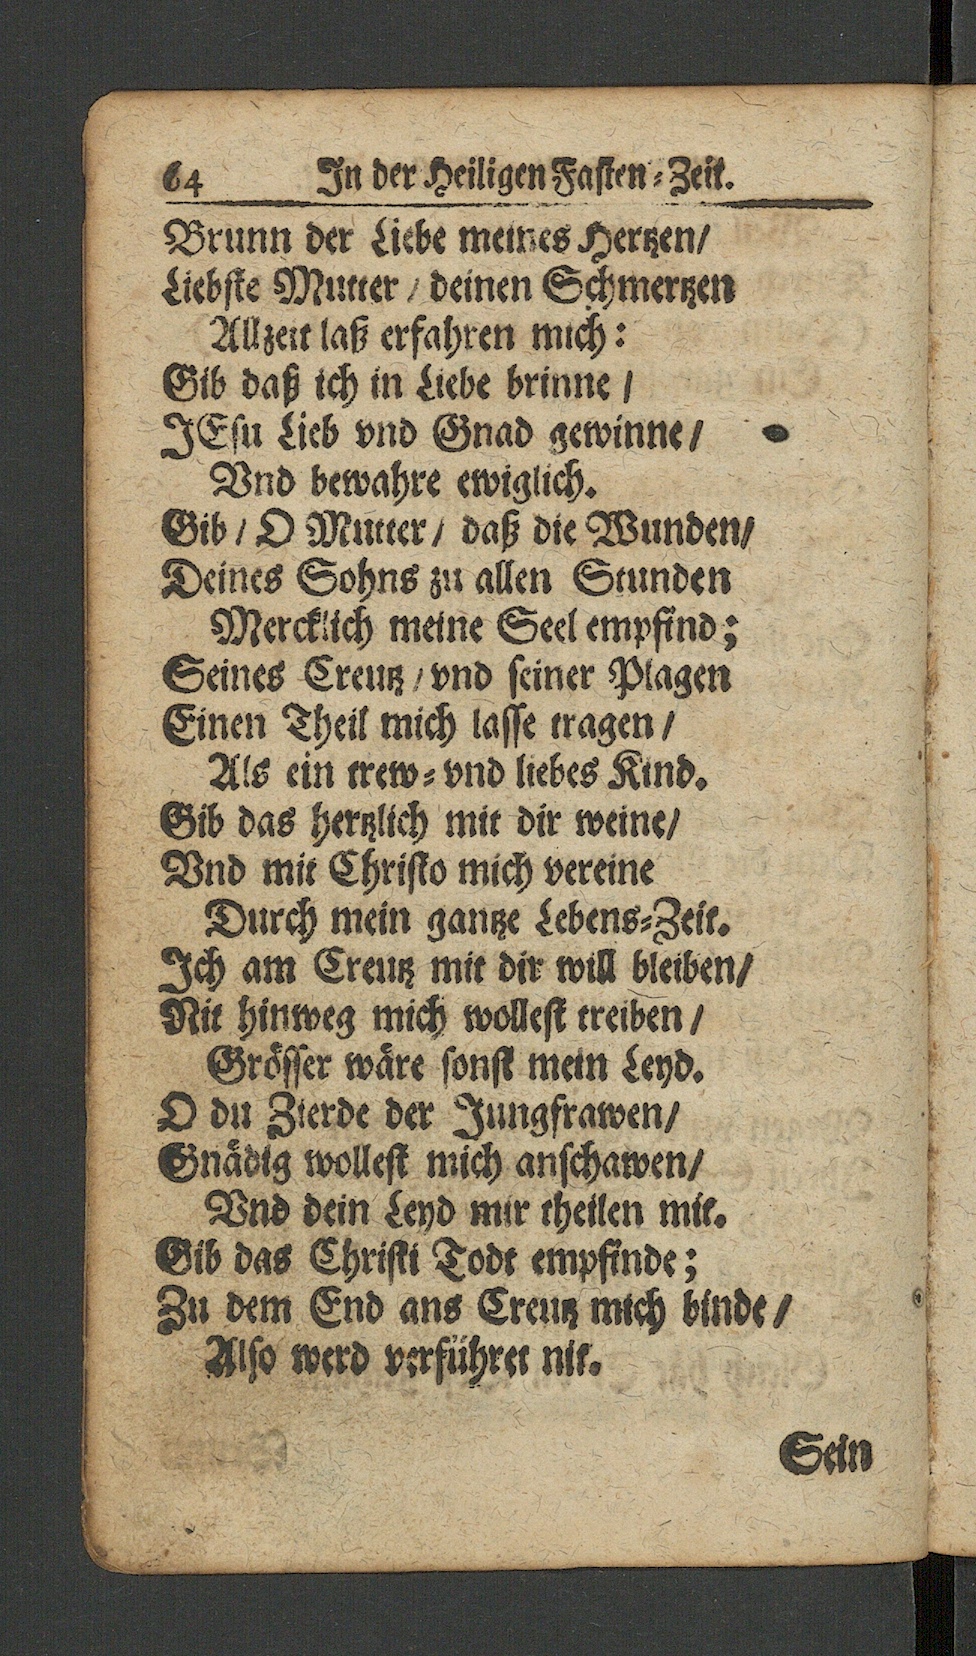 64 In der Heiligen Fasten-Zeit.
Brunn der Liebe meines Hertzen/
Liebste Mutter / deinen Schmertzen
Allzeit laß erfahren mich:
Gib daß ich in Liebe brinne /
JEsu Lieb vnd Gnad gewinne /
Vnd bewahre ewiglich.
Gib / O Mutter / daß die Wunden/
Deines Sohns zu allen Stunden
Mercklich meine Seel empfind;
Seines Creutz / vnd seiner Plagen
Einen Theil mich lasse tragen /
Als ein trew- vnd liebes Kind.
Gib das hertzlich mit dir weine/
Vnd mit Christo mich vereine
Durch mein gantze Lebens-Zeit.
Ich am Creutz mit dir will bleiben/
Nit hinweg mich wollest treiben /
Grösser wäre sonst mein Leyd.
O du Zierde der Jungfrawen/
Gnädig wollest mich anschawen/
Vnd dein Leyd mir theilen mit.
Gib das Christi Todt empfinde;
Zu dem End ans Creutz mich binde /
Also werd verführet nit.
Sein